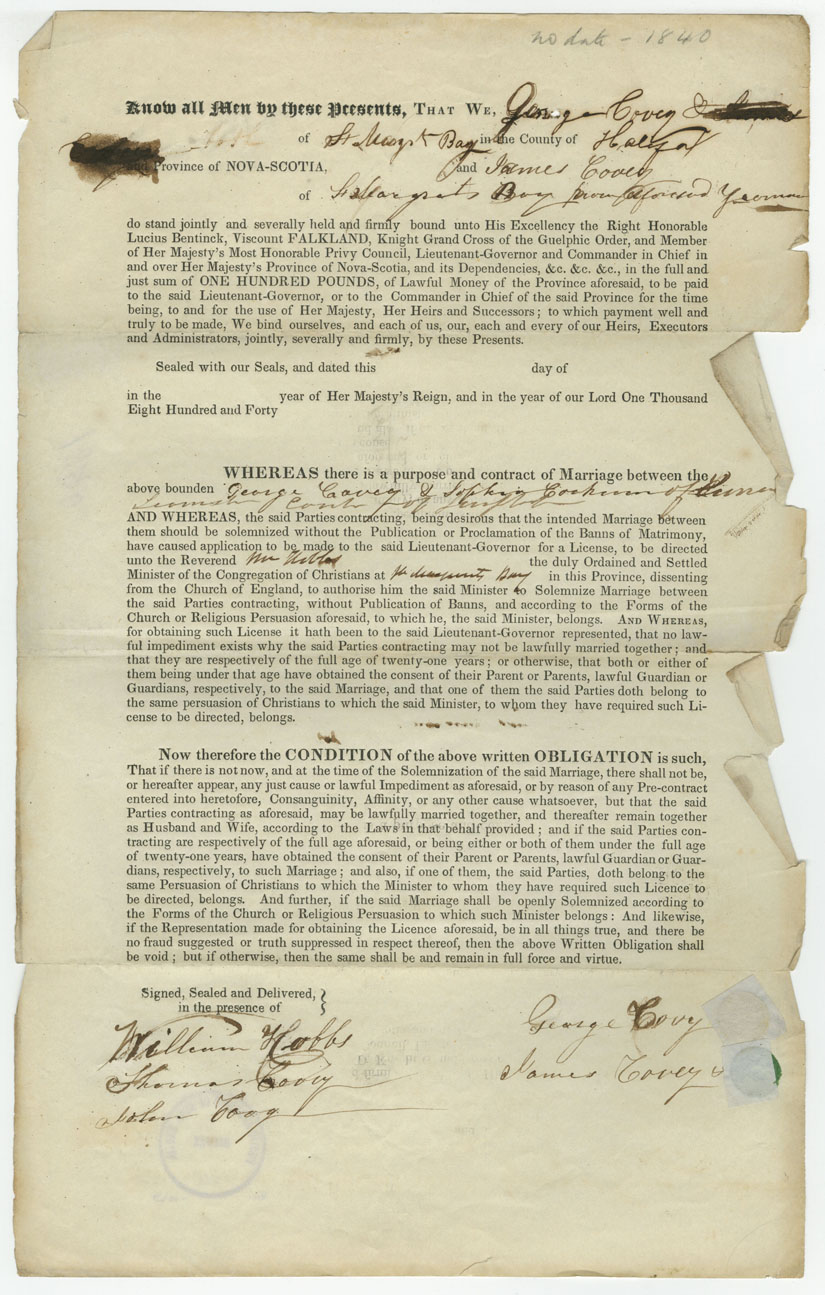 no date - 1840
Know all Men by these Presents, THAT WE, George Covey &
of St Margrt Bay in the County of Halifax
and Province of NOVA-SCOTIA, and James Covey
of St Margrets Bay aforesaid Yeoman
do stand jointly and severally held and firmly bound unto His Excellency the Right Honorable
Lucius Bentinck, Viscount FALKLAND, Knight Grand Cross of the Guelphic Order, and Member
of Her Majesty's Most Honorable Privy Council, Lieutenant-Governor and Commander in Chief in
and over Her Majesty's Province of Nova-Scotia, and its Dependencies, &c. &c. &c., in the full and
just sum of ONE HUNDRED POUNDS, of Lawful Money of the Province aforesaid, to be paid
to the said Lieutenant-Governor, or to the Commander in Chief of the said Province for the time
being, to and for the use of Her Majesty, Her Heirs and Successors; to which payment well and
truly to be made, We bind ourselves, and each of us, our, each and every of our Heirs, Executors
and Administrators, jointly, severally and firmly, by these Presents.
Sealed with our Seals, and dated this day of
in the year of Her Majesty's Reign, and in the year of our Lord One Thousand
Eight Hundred and Forty
WHEREAS there is a purpose and contract of Marriage between the
above bounden George Covey & Sophia of
AND WHEREAS, the said Parties contracting, being desirous that the intended Marriage between
them should be solemnized without the Publication or Proclamation of the Banns of Matrimony,
have caused application to be made to the said Lieutenant-Governor for a License, to be directed
unto the Reverend Mr Hobbs the duly Ordained and Settled
Minister of the Congregation of Christians at St Margrets Bay in this Province, dissenting
from the Church of England, to authorise him the said Minister to Solemnize Marriage between
the said Parties contracting, without Publication of Banns, and according to the Forms of the
Church or Religious Persuasion aforesaid, to which he, the said Minister, belongs. AND WHEREAS,
for obtaining such License it hath been to the said Lieutenant-Governor represented, that no law-
ful impediment exists why the said Parties contracting may not be lawfully married together; and
that they are respectively of the full age of twenty-one years; or otherwise, that both or either of
them being under that age have obtained the consent of their Parent or Parents, lawful Guardian or
Guardians, respectively, to the said Marriage, and that one of them the said Parties doth belong to
the same persuasion of Christians to which the said Minister, to whom they have required such Li-
cense to be directed, belongs.
Now therefore the CONDITION of the above written OBLIGATION is such,
That if there is not now, and at the time of the Solemnization of the said Marriage, there shall not be,
or hereafter appear, any just cause or lawful Impediment as aforesaid, or by reason of any Pre-contract
entered into heretofore, Consanguinity, Affinity, or any other cause whatsoever, but that the said
Parties contracting as aforesaid, may be lawfully married together, and thereafter remain together
as Husband and Wife, according to the Laws in that behalf provided; and if the said Parties con-
tracting are respectively of the full age aforesaid, or being either or both of them under the full age
of twenty-one years, have obtained the consent of their Parent or Parents, lawful Guardian or Guar-
dians, respectively, to such Marriage; and also, if one of them, the said Parties, doth belong to the
same Persuasion of Christians to which the Minister to whom they have required such Licence to
be directed, belongs. And further, if the said Marriage shall be openly Solemnized according to
the Forms of the Church or Religious Persuasion to which such Minister belongs: And likewise,
if the Representation made for obtaining the Licence aforesaid, be in all things true, and there be
no fraud suggested or truth suppressed in respect thereof, then the above Written Obligation shall
be void; but if otherwise, then the same shall be and remain in full force and virtue.
Signed, Sealed and Delivered,
in the presence of
William Hobbs
Thomas Covey
John Covy
George Covy
James Covey